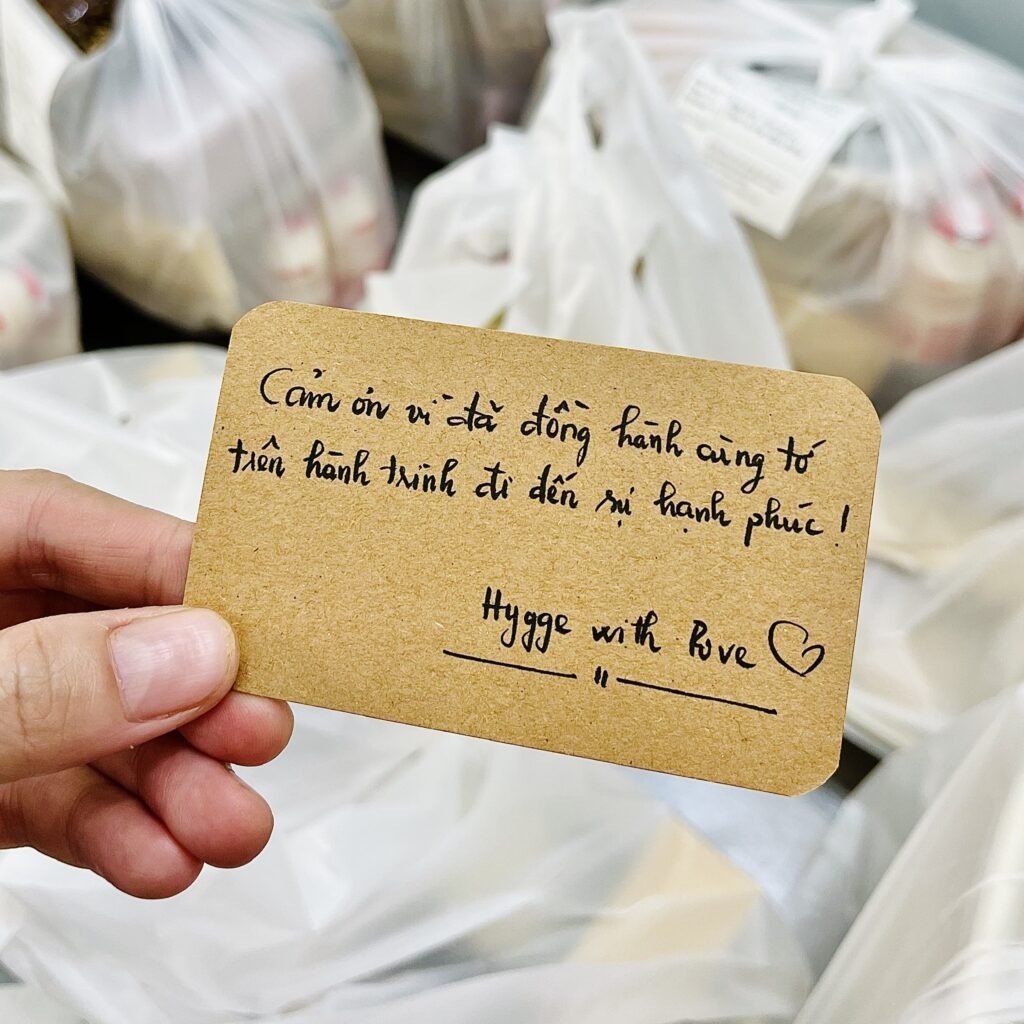 Cảm ơn vì đã đồng hành cùng tớ
trên hành trình đi đến sự hạnh phúc !
Hygge with love ♡